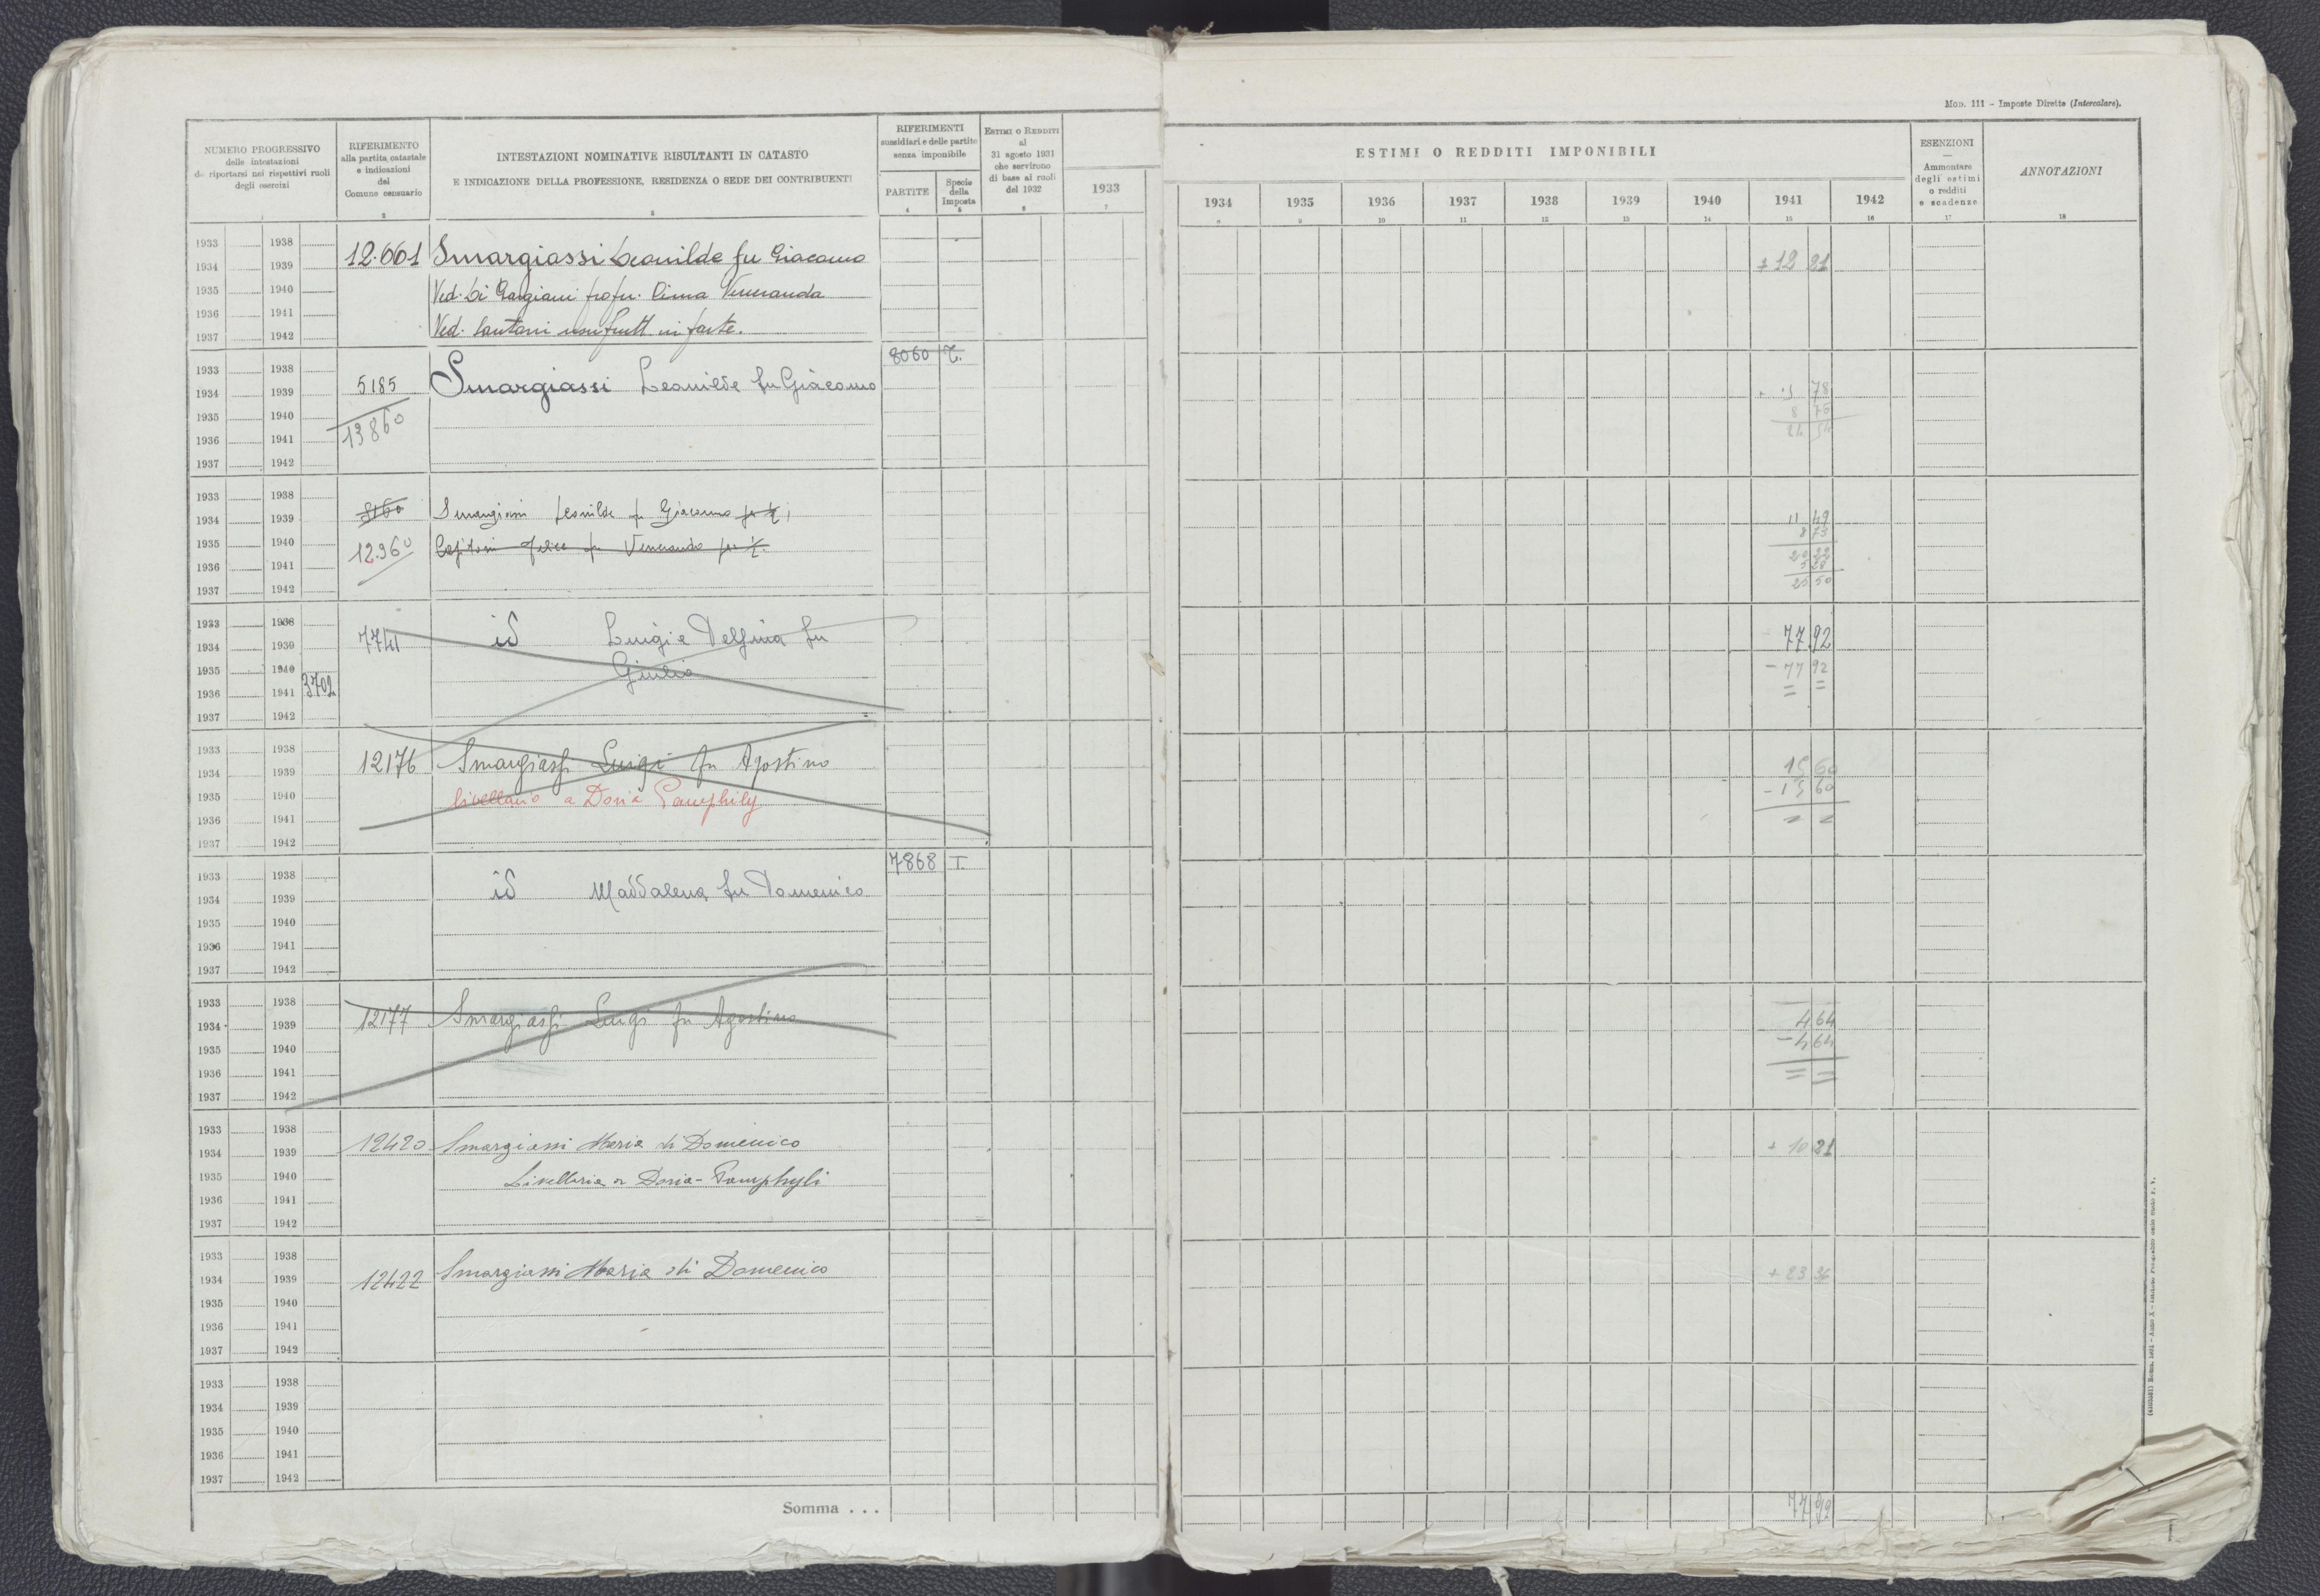 Mod. 111 - Imposte Dirette (Intercalare).
NUMERO PROGRESSIVO
delle intestazioni
da riportarsi nei rispettivi ruoli
degli esercizi
1
RIFERIMENTO
alla partita catastale
e indicazioni
del
Comune censuario
2
INTESTAZIONI NOMINATIVE RISULTANTI IN CATASTO
E INDICAZIONE DELLA PROFESSIONE, RESIDENZA O SEDE DEI CONTRIBUENTI
3
RIFERIMENTI
sussidiari e delle partite
senza imponibile
PARTITE
4
Specie
della
Imposta
5
ESTIMI O REDDITI
al
31 agosto 1931
che servirono
di base ai ruoli
del 1932
6
1933
7
ESTIMI O REDDITI IMPONIBILI
1934 1935 1936 1937 1938 1939 1940 1941 1942
8 9 10 11 12 13 14 15 16
ESENZIONI
—
Ammontare
degli estimi
o redditi
e scadenze
17
ANNOTAZIONI
18
1933 1938
1934 1939 12.661 Smargiassi Leonilde fu Giacomo + 12 21
1935 1940 Ved. Di Gargiani propr. Cima Veneranda
1936 1941
1937 1942 Ved. usufrutt in parte.
8060
1933 1938
1934 1939 5185 Smargiassi Leonilde fu Giacomo 78
1935 1940 8 76
1936 1941 13860 24 54
1937 1942
1933 1938
1934 1939 8160 Smargiassi Leonilde fu Giacomo 11 49
8 73
1935 1940 12.960 Capitani Felice fu Veneranda per ½
20 22
1936 1941 5 28
1937 1942 25 50
1933 1938
1934 1939 7741 id Luigi e Delfina fu 77 92
1935 1940 Giulio - 77 92
1936 1941 3702 = =
1937 1942
1933 1938
1934 1939 12176 Smargiassi Luigi fu Agostino 15 60
1935 1940 livellario a Doria Pamphily - 15 60
1936 1941 = =
1937 1942
7868 I.
1933 1938
1934 1939 id Maddalena fu Domenico
1935 1940
1936 1941
1937 1942
1933 1938
1934 1939 12177 Smargiassi Luigi fu Agostino 4 64
1935 1940 - 4 64
1936 1941 = =
1937 1942
1933 1938
1934 1939 12420 Smargiassi Maria di Domenico + 10 81
1935 1940 Livellaria a Doria-Pamphyli
1936 1941
1937 1942
1933 1938
1934 1939 12422 Smargiassi Maria di Domenico + 23 36
1935 1940
1936 1941
1937 1942
1933 1938
1934 1939
1935 1940
1936 1941
1937 1942
Somma . . . 77 92